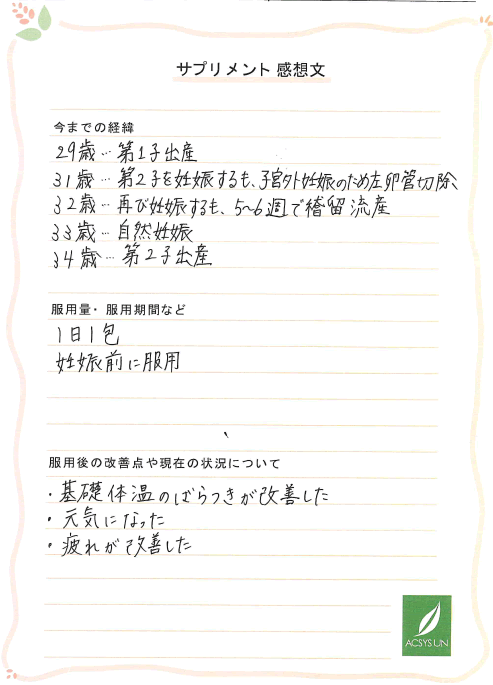 サプリメント 感想文
今までの経緯
29歳…第1子出産
31歳…第2子を妊娠するも、子宮外妊娠のため左卵管切除
32歳…再び妊娠するも、5~6週で稽留流産
33歳…自然妊娠
34歳…第2子出産
服用量・服用期間など
1日1包
妊娠前に服用
服用後の改善点や現在の状況について
・基礎体温のばらつきが改善した
・元気になった
・疲れが改善した
ACSYS UN